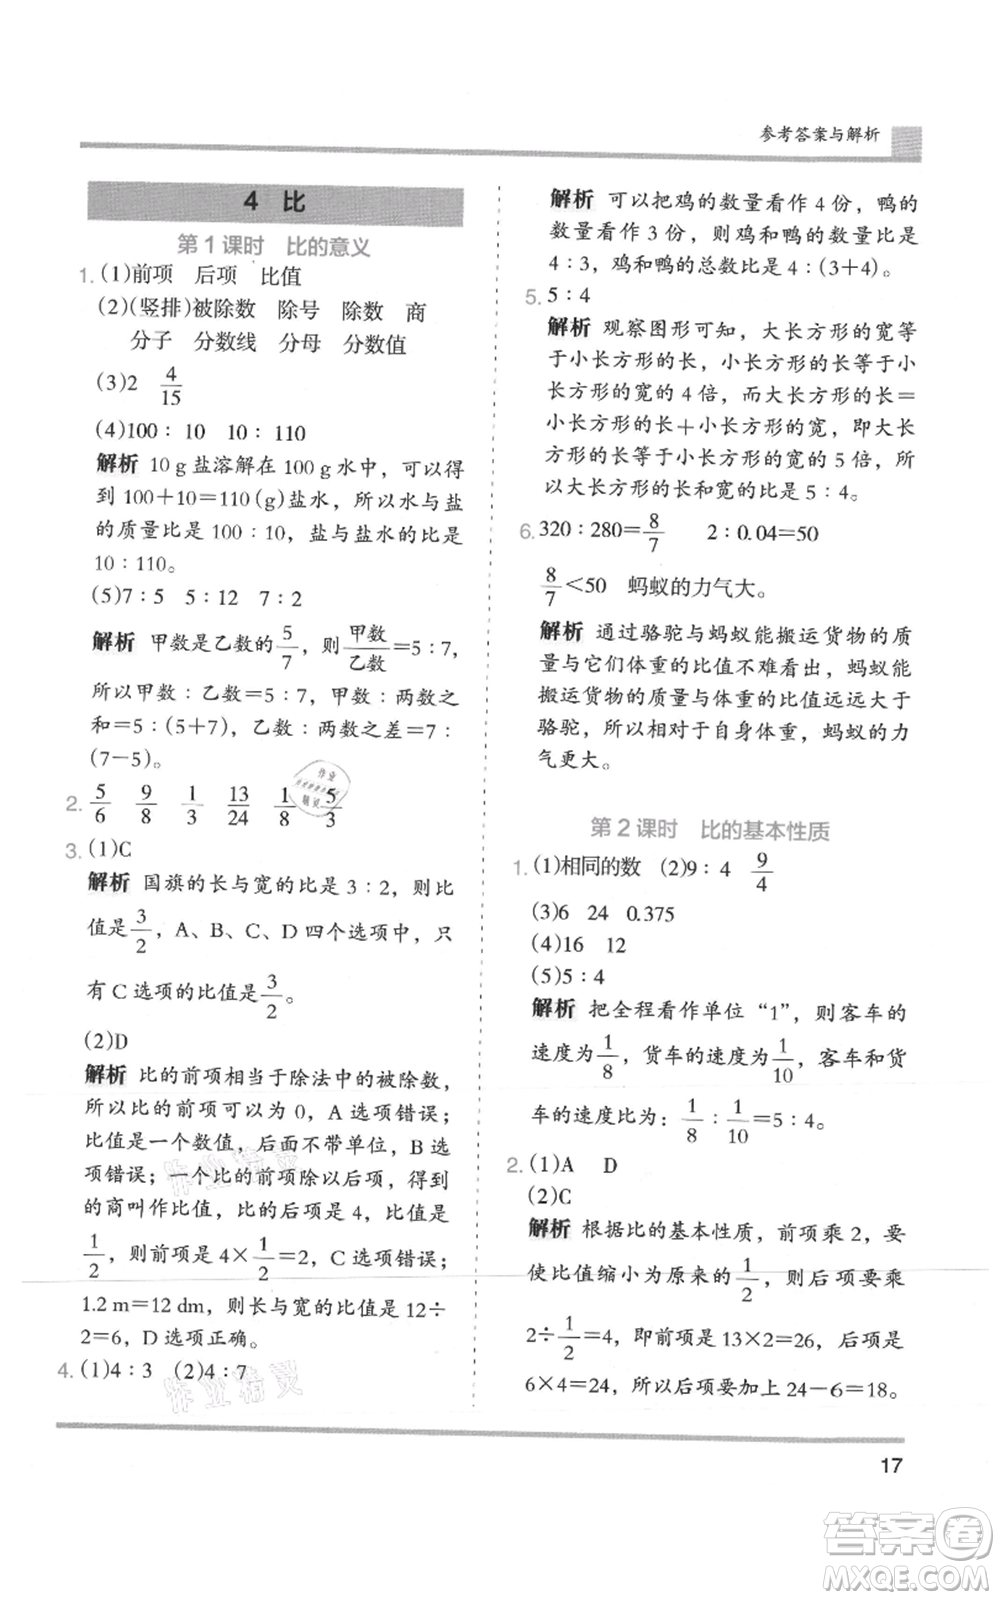 参考答案与解析
4 比
第1课时 比的意义
1. (1)前项 后项 比值
(2)(竖排)被除数 除号 除数 商
分子 分数线 分母 分数值
(3)2 4/15
(4)100：10 10：110
解析 10 g盐溶解在100 g水中，可以得
到100＋10＝110(g)盐水，所以水与盐
的质量比是100：10，盐与盐水的比是
10：110。
(5)7：5 5：12 7：2
解析 甲数是乙数的5/7，则甲数/乙数＝5：7，
所以甲数：乙数＝5：7，甲数：两数之
和＝5：(5＋7)，乙数：两数之差＝7：
(7－5)。
2. 5/6 9/8 1/3 13/24 1/8 5/3
3. (1)C
解析 国旗的长与宽的比是3：2，则比
值是3/2，A、B、C、D四个选项中，只
有C选项的比值是3/2。
(2)D
解析 比的前项相当于除法中的被除数，
所以比的前项可以为0，A选项错误；
比值是一个数值，后面不带单位，B选
项错误；一个比的前项除以后项，所得
的商叫作比值，比的后项是4，比值是
1/2，则前项是4×1/2＝2，C选项错误；
1.2 m＝12 dm，则长与宽的比值是12÷
2＝6，D选项正确。
4. (1)4：3 (2)4：7
解析 可以把鸡的数量看作4份，鸭的
数量看作3份，则鸡和鸭的数量比是
4：3，鸡和鸭的总数比是4：(3＋4)。
5. 5：4
解析 观察图形可知，大长方形的宽等
于小长方形的长，小长方形的长等于小
长方形的宽的4倍，而大长方形的长＝
小长方形的长＋小长方形的宽，即大长
方形的长等于小长方形的宽的5倍，所
以大长方形的长和宽的比是5：4。
6. 320：280＝8/7 2：0.04＝50
8/7＜50 蚂蚁的力气大。
解析 通过骆驼与蚂蚁能搬运货物的质
量与它们体重的比值不难看出，蚂蚁能
搬运货物的质量与体重的比值远远大于
骆驼，所以相对于自身体重，蚂蚁的力
气更大。
第2课时 比的基本性质
1. (1)相同的数 (2)9：4 9/4
(3)6 24 0.375
(4)16 12
(5)5：4
解析 把全程看作单位“1”，则客车的
速度为1/8，货车的速度为1/10，客车和货
车的速度比为：1/8：1/10＝5：4。
2. (1)A D
(2)C
解析 根据比的基本性质，前项乘2，要
使比值缩小为原来的1/2，则后项要乘
2÷1/2＝4，即前项为13×2＝26，后项为
6×4＝24，所以后项要加上24－6＝18。
17
作业精灵
作业精灵
作业
精灵
答案卷
MXQE.COM